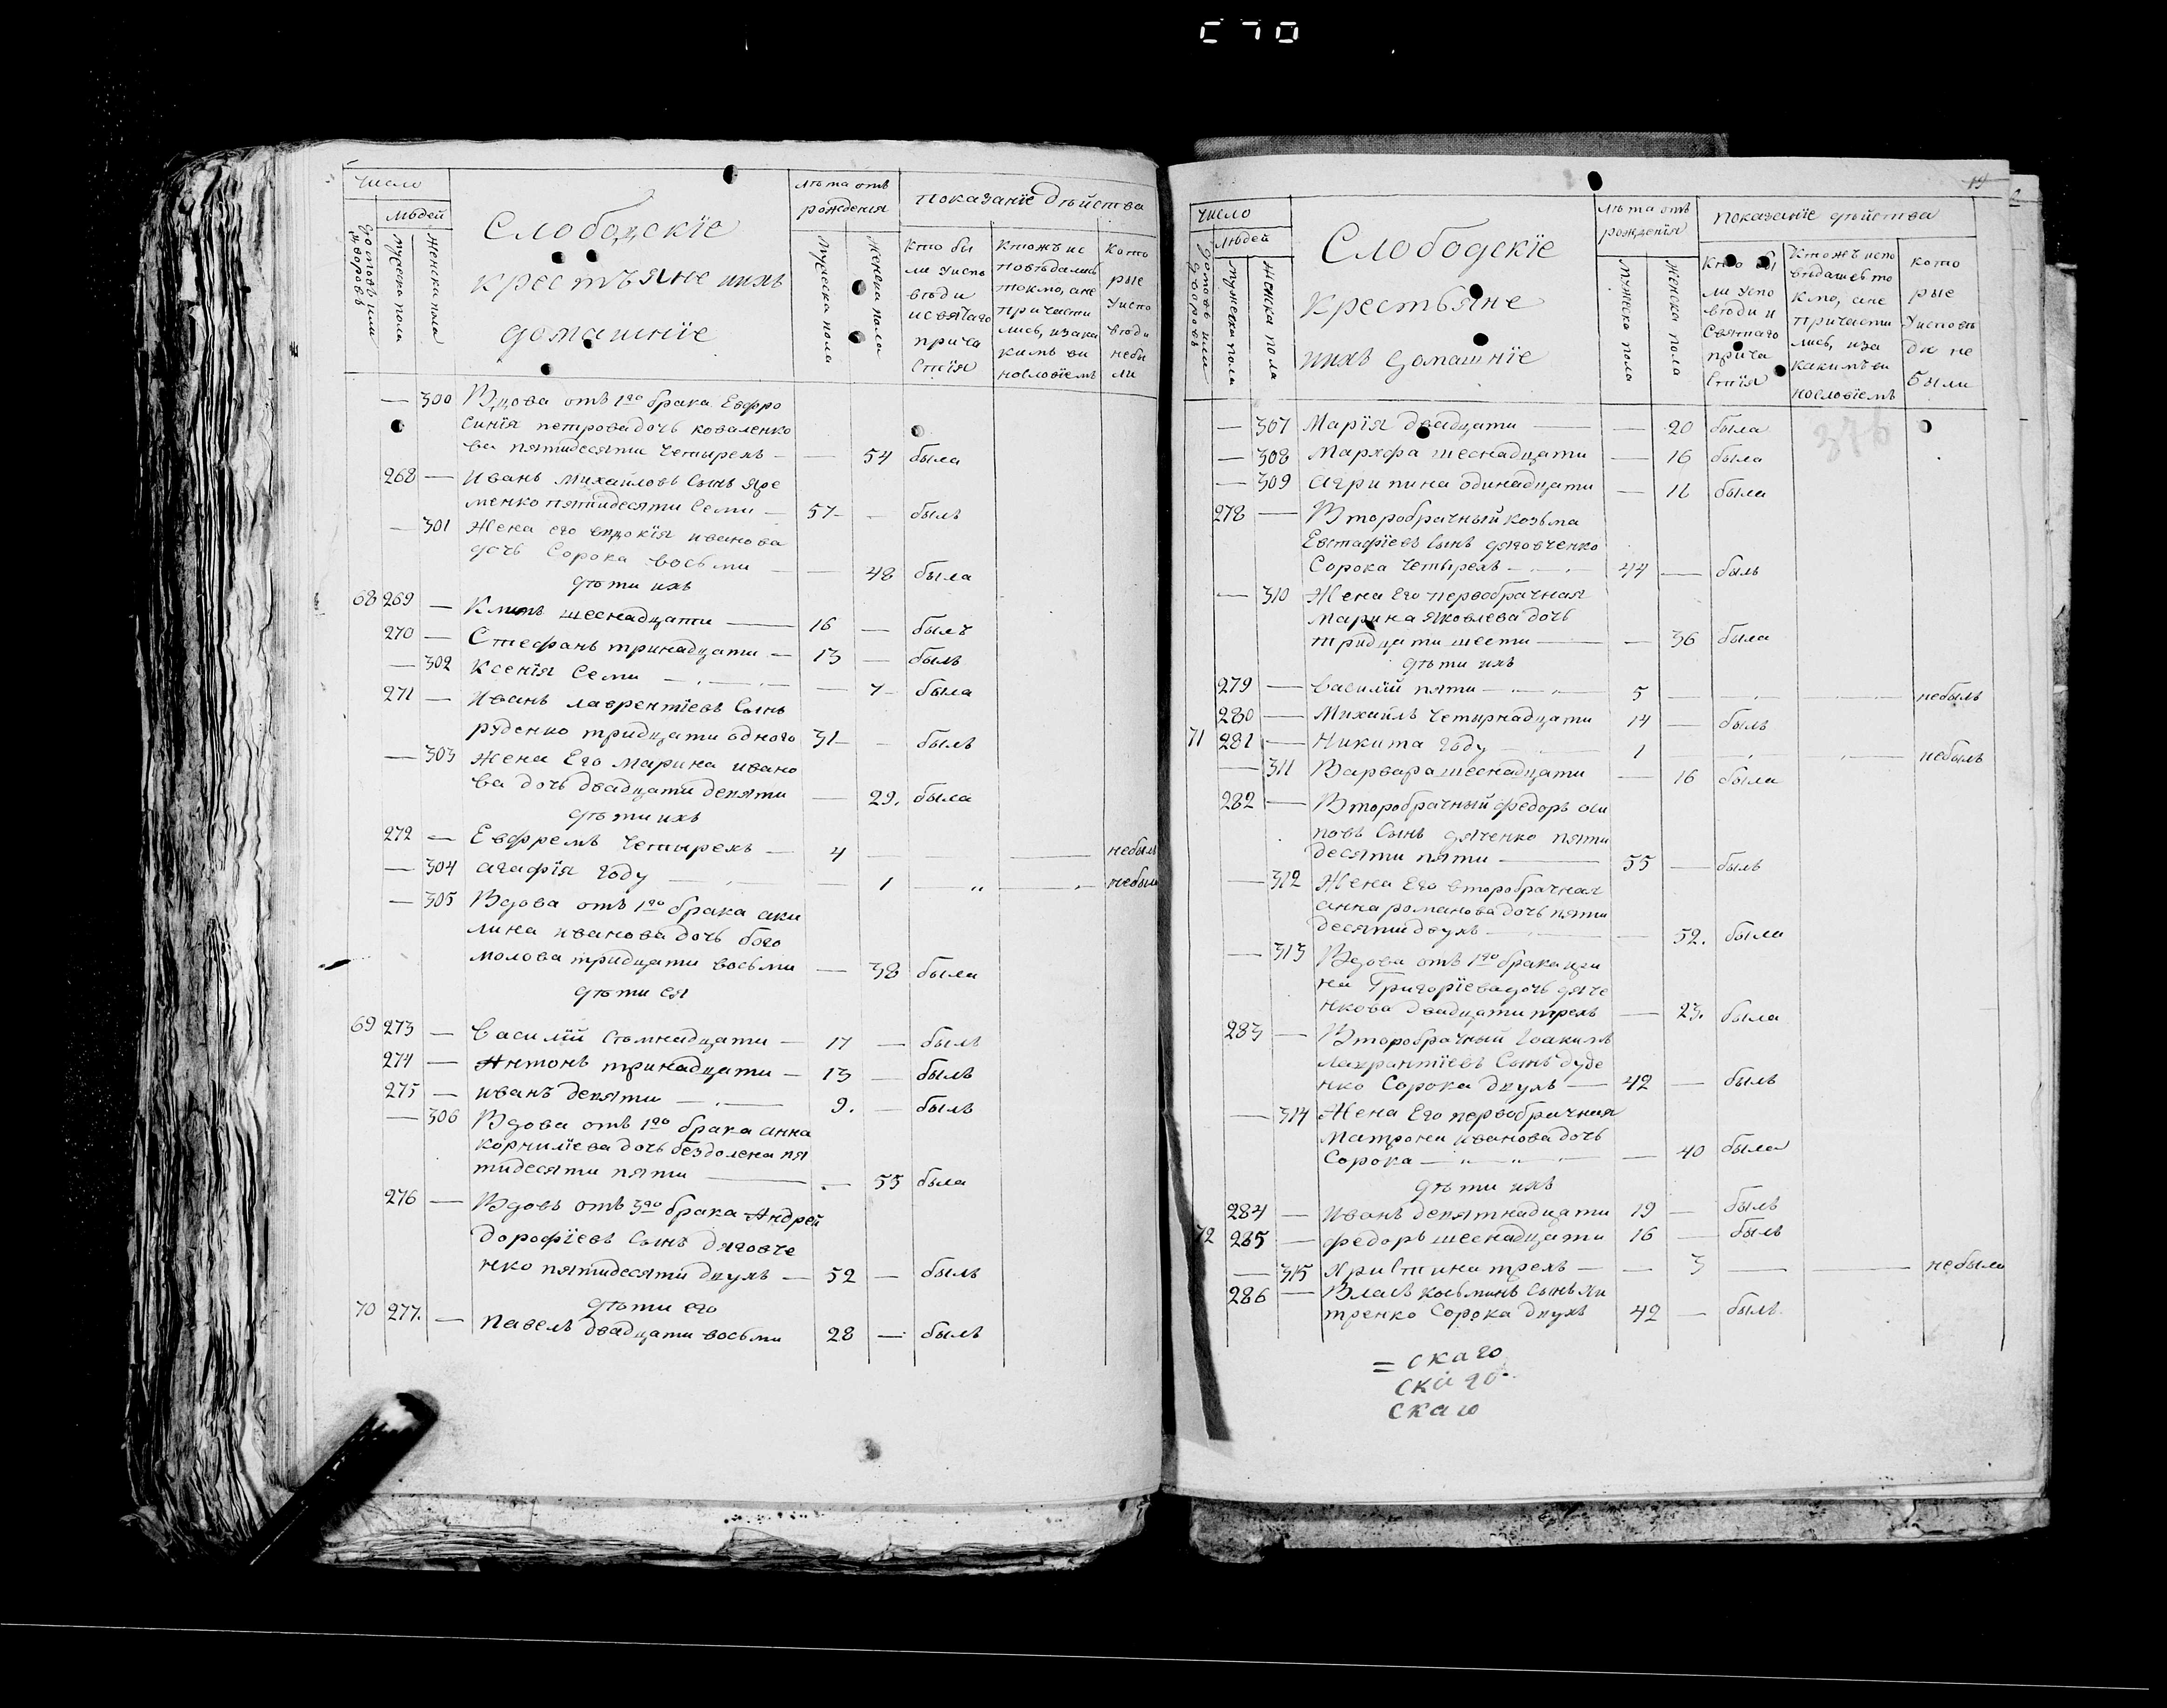 С70
число
людей
домовъ или дворовъ
мужеска пола
женска пола
Слободскїе
крестъяне ихъ
домашнїе
лѣта отъ
рожденїя
мужеска пола
женска пола
показанїе дѣйства
кто бы
ли уиспо
вѣди
исвятаго
прича
стїя
ктожъ ис
повѣдались
токмо, ане
причасти
лись, изака
кимъ ви
нословїемъ
кото
рые
уиспо
вѣди
небы
ли
— 300 Вдова отъ 1го брака Евфро
синїя петрова дочь коваленко
ва пятидесяти четырехъ — — 54 была
268 — Иванъ михайловъ сынъ яре
менко пятидесяти семи — 57 — былъ
— 301 Жена его евдокїя иванова
дочь сорока восьми — — 48 была
дѣти ихъ
68 269 — шеснадцати — 16 — былъ
270 — Стефанъ тринадцати — 13 — былъ
— 302 Ксенїя семи — — 7 была
271 — Иванъ лаврентїевъ сынъ
руденко тридцати одного 31 — былъ
— 303 жена Его марина ивано
ва дочь двадцати девяти — 29. была
дѣти ихъ
272 — Евфремъ четырехъ — 4 — небылъ
— 304 агафїя году — — 1 — небыла
— 305 Вдова отъ 1го брака аки
лина иванова дочь бого
молова тридцати восьми — 38 была
дѣти ея
69 273 — василїй семнадцати — 17 — былъ
274 — Антонъ тринадцати — 13 — былъ
275 — иванъ девяти — 9. — былъ
— 306 Вдова отъ 1го брака анна
корнилїева дочь бездолена пя
тидесяти пяти — — 55 была
276 — Вдовъ отъ 3го брака Андрей
дорофїевъ сынъ дяговче
нко пятидесяти двухъ — 52 — былъ
дѣти его
70 277. — павелъ двадцати восьми 28 — былъ
19
число
людей
домовъ или дворовъ
мужеска пола
женска пола
Слободскїе
крестьяне
ихъ домашнїе
лѣта отъ
рожденїя
мужеско пола
женска пола
показанїе дѣйства
кто бы
ли успо
вѣди и
святаго
прича
стїя
Ктожъ испо
вѣдались то
кмо, ане
причасти
лись, иза
какимъ ви
нословїемъ
кото
рые
уисповѣ
ди не
были
— 307 Марїя двадцати — — 20 была 376
— 308 Марфа шеснадцати — 16 была
— 309 агрипина одинадцати — 11 была
278 — Второбрачный козьма
Евстафїевъ сынъ дяговченко
сорока четырехъ — 44 — былъ
— 310 Жена Его первобрачная
марина яковлева дочь
тридцати шести — — 36 была
дѣти ихъ
279 — василїй пяти — 5 — небылъ
280 — Михаилъ четырнадцати 14 — былъ
71 281 — Никита году — 1 — небылъ
— 311 Варвара шеснадцати — 16 была
282 — Второбрачный федоръ оси
повъ сынъ дяченко пяти
десяти пяти — 55 — былъ
— 312 Жена Его второбрачная
анна романова дочь пяти
десяти двухъ — — 52. была
— 313 Вдова отъ 1го брака ири
на Григорїева дочь дяче
нкова двадцати трехъ — 23. была
283 — Второбрачный Іоакимъ
лаврентїевъ сынъ дуде
нко сорока двухъ — 42 — былъ
— 314 Жена Его первобрачная
матрона иванова дочь
сорока — — 40 была
дѣти ихъ
284 — иванъ девятнадцати 19 — былъ
72 285 — федоръ шеснадцати 16 — былъ
— 315 христина трехъ — — 3 — небыла
286 — Власъ косьминъ сынъ хи
тренко сорока двухъ 42 — былъ
= скаго
скаго
скаго